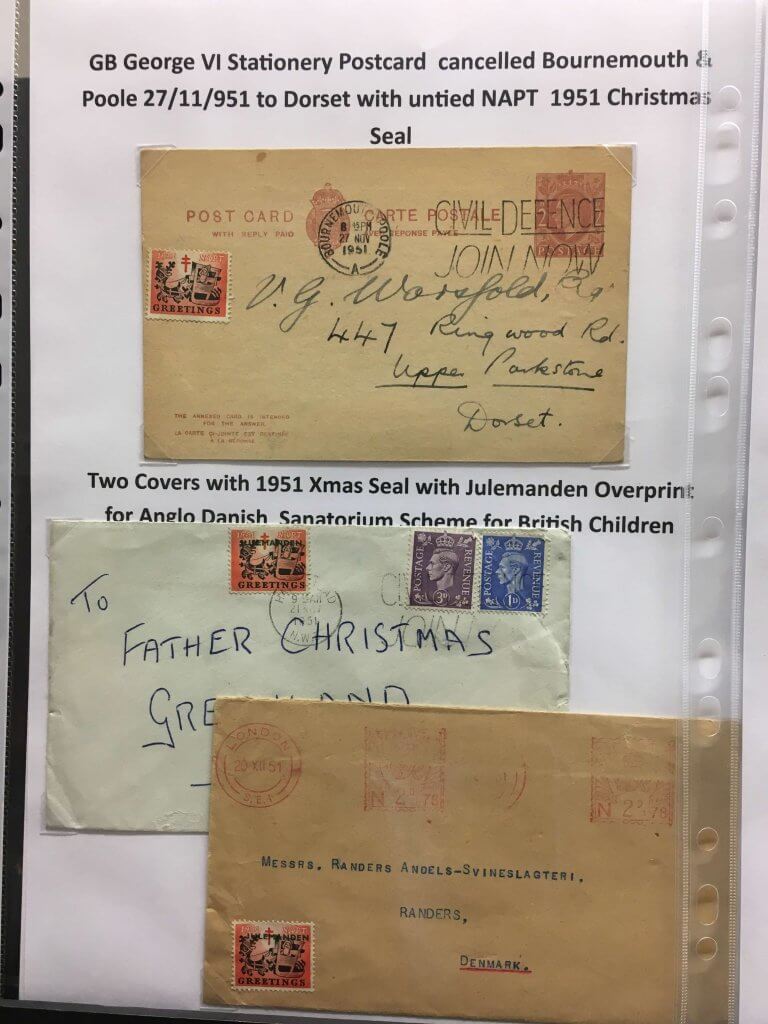 GB George VI Stationery Postcard cancelled Bournemouth &
Poole 27/11/951 to Dorset with untied NAPT 1951 Christmas
Seal
POST CARD CARTE POSTALE
WITH REPLY PAID
BOURNEMOUTH POOLE
8 15PM
27 NOV
1951
A
CIVIL DEFENCE
JOIN NOW
1951 NAPT
GREETINGS
V. G. Worsfold, Esq
447 Ringwood Rd.
Upper Parkstone
Dorset.
THE ANNEXED CARD IS INTENDED
FOR THE ANSWER.
LA CARTE CI-JOINTE EST DESTINÉE
A LA RÉPONSE
Two Covers with 1951 Xmas Seal with Julemanden Overprint
for Anglo Danish Sanatorium Scheme for British Children
1951 NAPT
JULEMANDEN
GREETINGS
1951
N.W.
POSTAGE REVENUE
3D
POSTAGE REVENUE
1D
JOIN
To
FATHER CHRISTMAS
LONDON
20 XII 51
S.E.1
N 2 78
N 2 78
MESSRS. RANDERS ANDELS-SVINESLAGTERI.
RANDERS,
DENMARK.
1951 NAPT
JULEMANDEN
GREETINGS